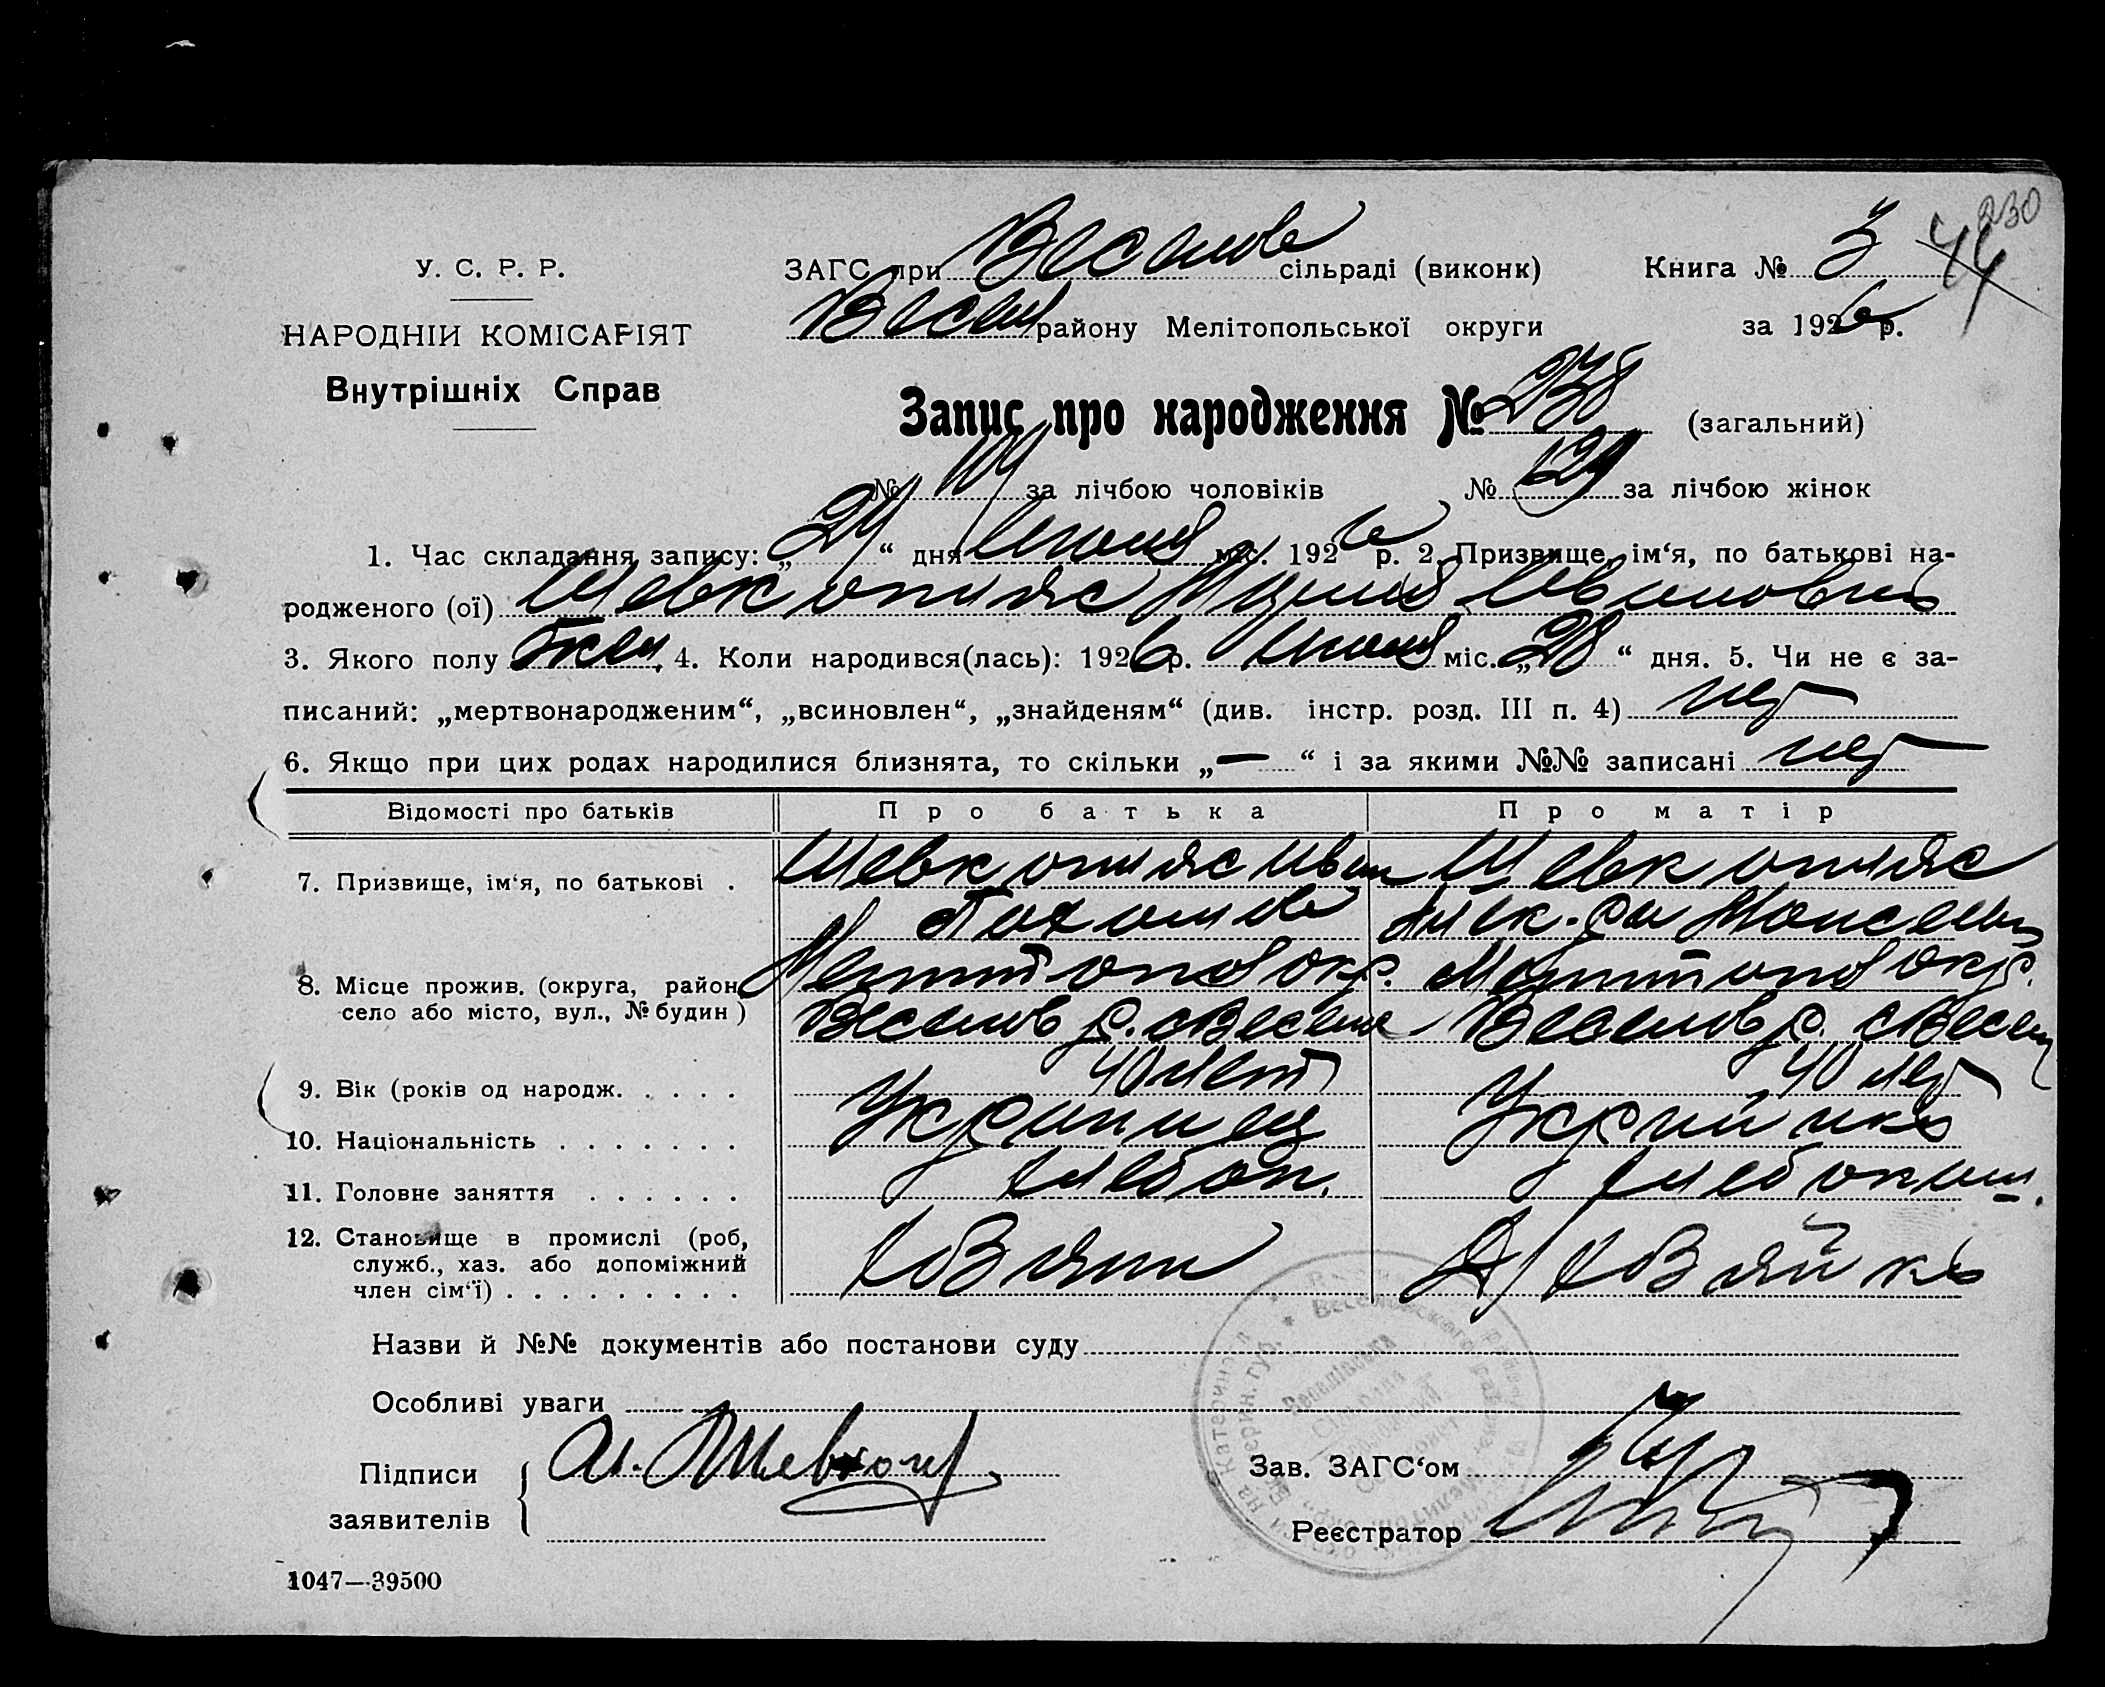 230
У. С. Р. Р.
НАРОДНІЙ КОМІСАРІЯТ
Внутрішніх Справ
ЗАГС при Веселов сільраді (виконк) Книга № 3 44
Весел району Мелітопольської округи за 1926 р.
Запис про народження № 238 (загальний)
№ 109 за лічбою чоловіків № 129 за лічбою жінок
1. Час складання запису: „29“ дня Июня міс. 1926 р. 2. Призвище, ім‘я, по батькові на-
родженого (ої) Шевкопляс Ивановна
3. Якого полу жен. 4. Коли народився(лась): 1926 р. Июня міс. „28“ дня. 5. Чи не є за-
писаний: „мертвонародженим“, „всиновлен“, „знайденям“ (див. інстр. розд. III п. 4) нет
6. Якщо при цих родах народилися близнята, то скільки „—“ і за якими №№ записані нет
Відомості про батьків Про батька Про матір
7. Призвище, ім‘я, по батькові . Шевкопляс Иван Шевкопляс
Моисеевн
8. Місце прожив. (округа, район, Мелитопол окр. Мелитопол окр.
село або місто, вул., № будин) Веселов р. с Веселое Веселов р. с Весел
9. Вік (років од народж. . . . . 40 лет 40 лет
10. Національність . . . . . . . Украинец Украинка
11. Головне заняття . . . . . . хлебоп. хлебопаш.
12. Становище в промислі (роб,
служб., хаз. або допоміжний Хозяин Хозяйка
член сім‘ї) . . . . . . . . .
Назви й №№ документів або постанови суду
Особливі уваги
Підписи И. Шевкопл Зав. ЗАГС‘ом
заявителів Реєстратор
1047—39500